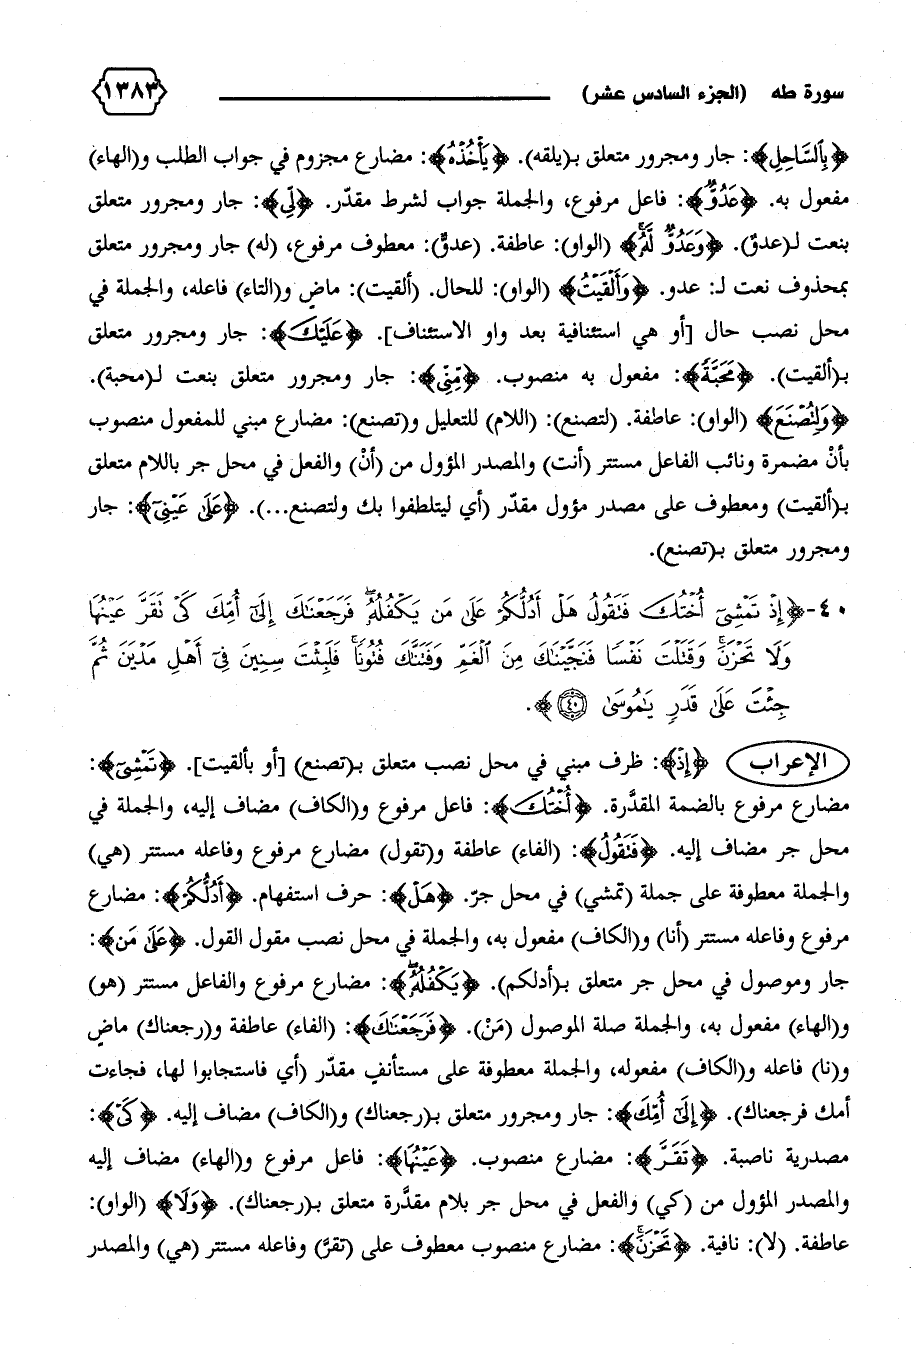 سورة طه (الجزء السادس عشر) ١٣٨٣
﴿بِالسَّاحِلِ﴾: جار ومجرور متعلق بـ(يلقه). ﴿يَأْخُذْهُ﴾: مضارع مجزوم في جواب الطلب و(الهاء)
مفعول به. ﴿عَدُوٌّ﴾: فاعل مرفوع، والجملة جواب لشرط مقدّر. ﴿لِّي﴾: جار ومجرور متعلق
بنعت لـ(عدوّ). ﴿وَعَدُوٌّ لَّهُۚ﴾ (الواو): عاطفة. (عدوٌّ): معطوف مرفوع، (له) جار ومجرور متعلق
بمحذوف نعت لـ: عدو. ﴿وَأَلْقَيْتُ﴾ (الواو): للحال. (ألقيت): ماضٍ و(التاء) فاعله، والجملة في
محل نصب حال [أو هي استئنافية بعد واو الاستئناف]. ﴿عَلَيْكَ﴾: جار ومجرور متعلق
بـ(ألقيت). ﴿مَحَبَّةً﴾: مفعول به منصوب. ﴿مِّنِّي﴾: جار ومجرور متعلق بنعت لـ(محبة).
﴿وَلِتُصْنَعَ﴾ (الواو): عاطفة. (لتصنع): (اللام) للتعليل و(تصنع): مضارع مبني للمفعول منصوب
بأنْ مضمرة ونائب الفاعل مستتر (أنت) والمصدر المؤول من (أنْ) والفعل في محل جر باللام متعلق
بـ(ألقيت) ومعطوف على مصدر مؤول مقدّر (أي ليتلطفوا بك ولتصنع...). ﴿عَلَىٰ عَيْنِيٓ﴾: جار
ومجرور متعلق بـ(تصنع).
٤٠- ﴿إِذْ تَمْشِيٓ أُخْتُكَ فَتَقُولُ هَلْ أَدُلُّكُمْ عَلَىٰ مَن يَكْفُلُهُۥۖ فَرَجَعْنَٰكَ إِلَىٰٓ أُمِّكَ كَيْ تَقَرَّ عَيْنُهَا
وَلَا تَحْزَنَۚ وَقَتَلْتَ نَفْسًا فَنَجَّيْنَٰكَ مِنَ ٱلْغَمِّ وَفَتَنَّٰكَ فُتُونًاۚ فَلَبِثْتَ سِنِينَ فِيٓ أَهْلِ مَدْيَنَ ثُمَّ
جِئْتَ عَلَىٰ قَدَرٍ يَٰمُوسَىٰ ٤٠﴾.
الإعراب ﴿إِذْ﴾: ظرف مبني في محل نصب متعلق بـ(تصنع) [أو بألقيت]. ﴿تَمْشِيٓ﴾:
مضارع مرفوع بالضمة المقدَّرة. ﴿أُخْتُكَ﴾: فاعل مرفوع و(الكاف) مضاف إليه، والجملة في
محل جر مضاف إليه. ﴿فَتَقُولُ﴾: (الفاء) عاطفة و(تقول) مضارع مرفوع وفاعله مستتر (هي)
والجملة معطوفة على جملة (تمشي) في محل جرّ. ﴿هَلْ﴾: حرف استفهام. ﴿أَدُلُّكُمْ﴾: مضارع
مرفوع وفاعله مستتر (أنا) و(الكاف) مفعول به، والجملة في محل نصب مقول القول. ﴿عَلَىٰ مَن﴾:
جار وموصول في محل جر متعلق بـ(أدلكم). ﴿يَكْفُلُهُۥۖ﴾: مضارع مرفوع والفاعل مستتر (هو)
و(الهاء) مفعول به، والجملة صلة الموصول (مَنْ). ﴿فَرَجَعْنَٰكَ﴾: (الفاء) عاطفة و(رجعناك) ماضٍ
و(نا) فاعله و(الكاف) مفعوله، والجملة معطوفة على مستأنفٍ مقدّر (أي فاستجابوا لها، فجاءت
أمك فرجعناك). ﴿إِلَىٰٓ أُمِّكَ﴾: جار ومجرور متعلق بـ(رجعناك) و(الكاف) مضاف إليه. ﴿كَيْ﴾:
مصدرية ناصبة. ﴿تَقَرَّ﴾: مضارع منصوب. ﴿عَيْنُهَا﴾: فاعل مرفوع و(الهاء) مضاف إليه
والمصدر المؤول من (كي) والفعل في محل جر بلام مقدَّرة متعلق بـ(رجعناك). ﴿وَلَا﴾ (الواو):
عاطفة. (لا): نافية. ﴿تَحْزَنَۚ﴾: مضارع منصوب معطوف على (تقرَّ) وفاعله مستتر (هي) والمصدر